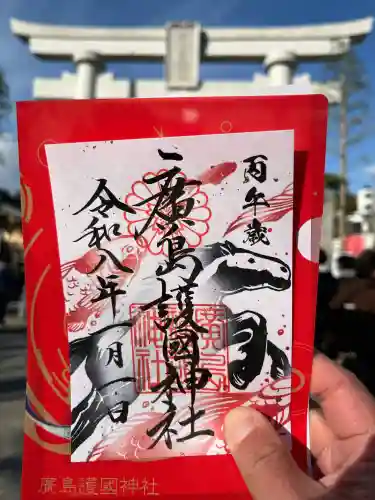 丙午歳
廣島護國神社
令和八年一月一日
廣島護國神社
廣島護國神社